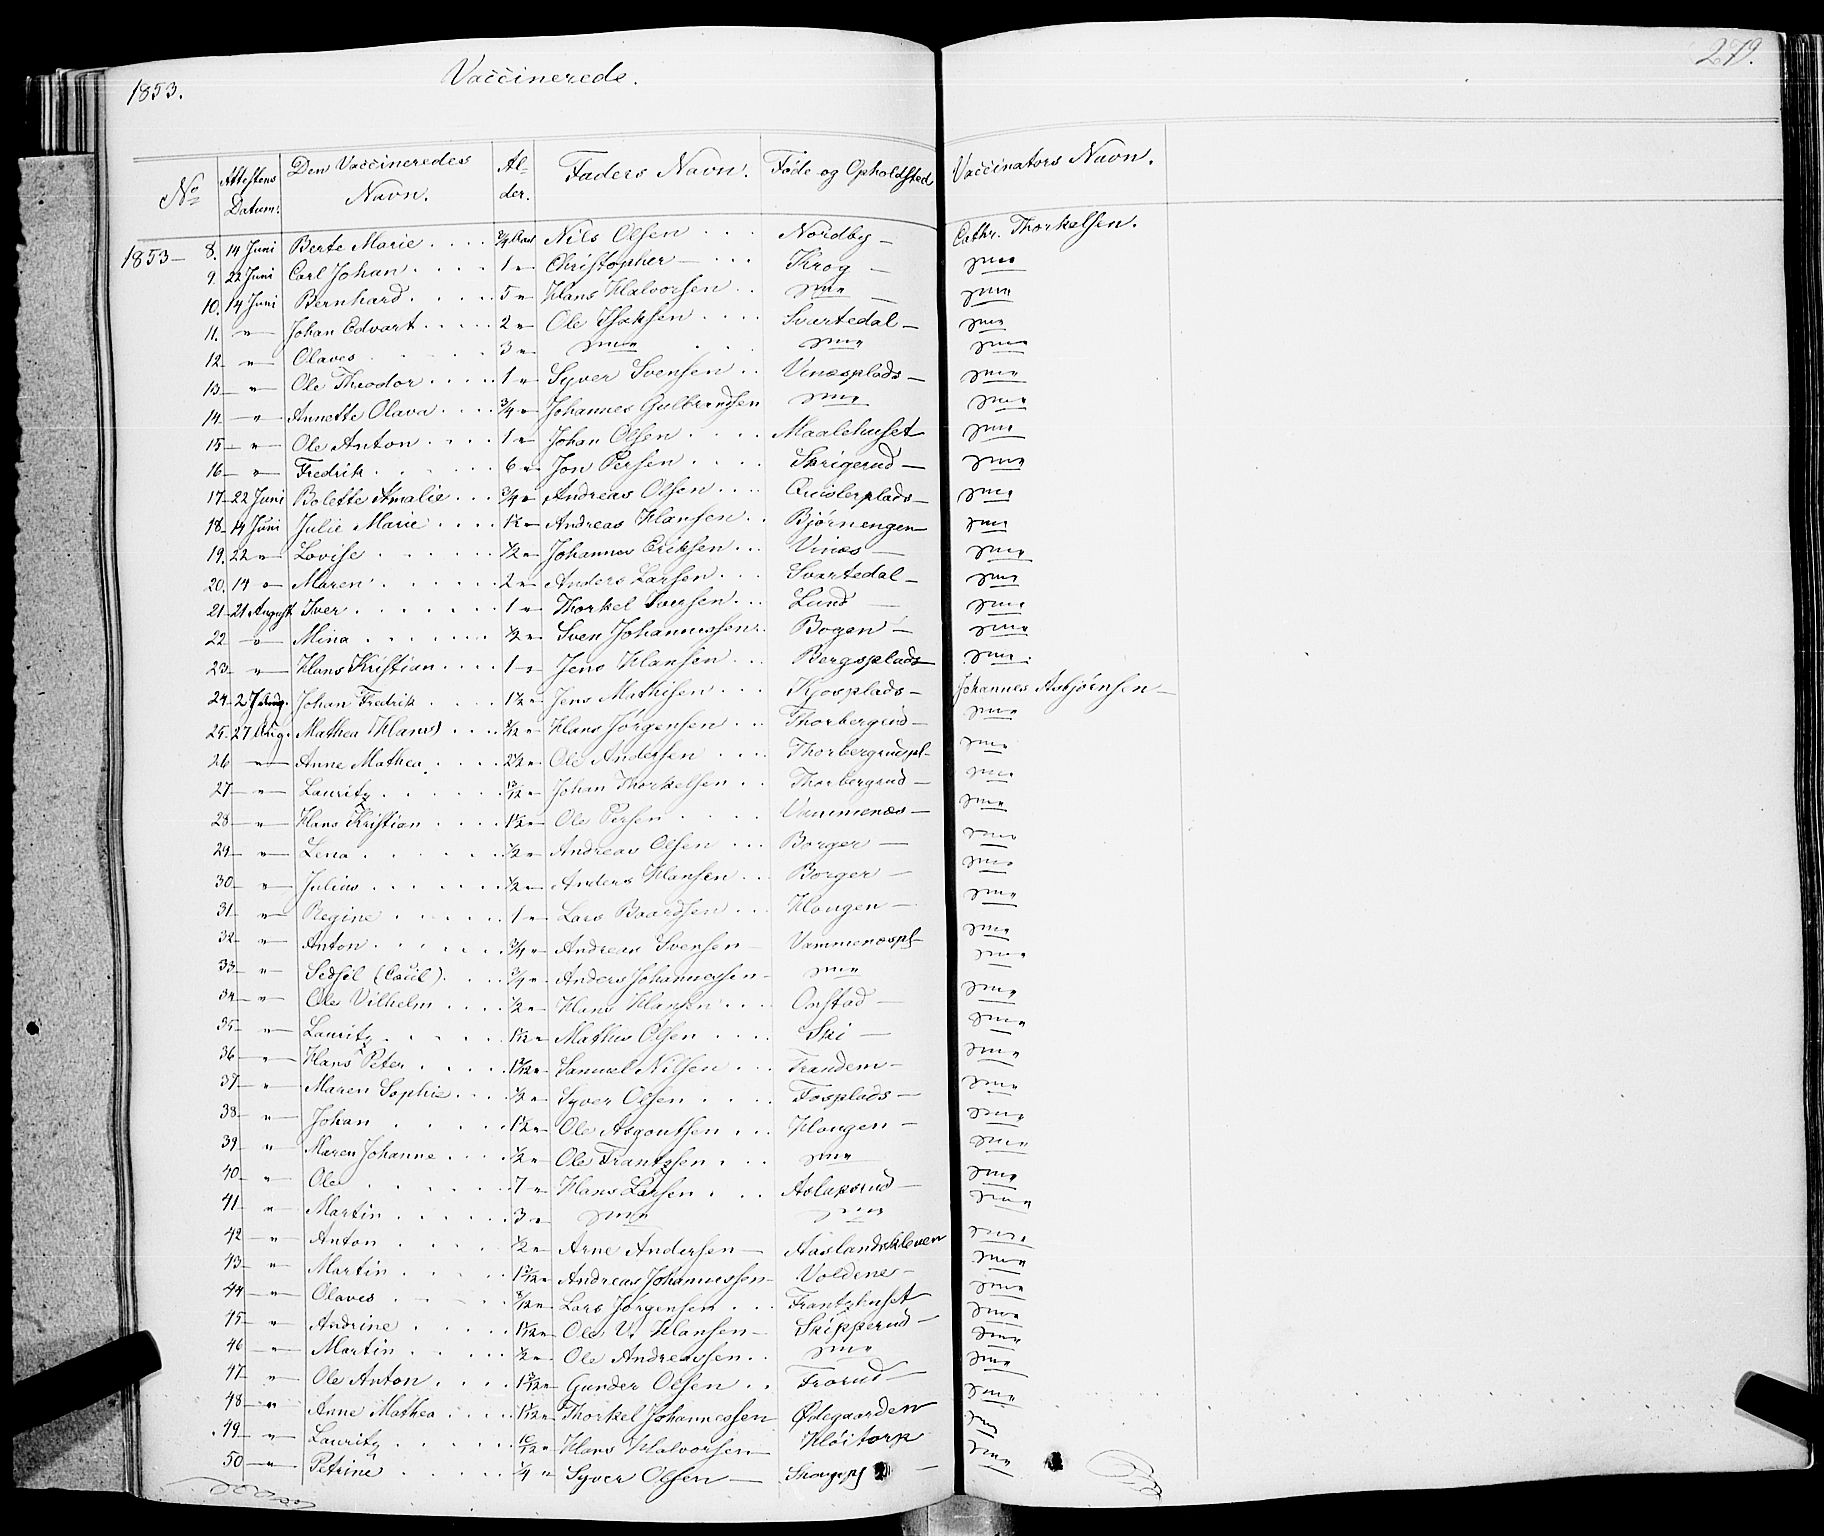 1853. Vaccinerede. 279.
No Attestens Datum. Den Vaccineredes Navn. Alder. Faders Navn. Føde og Opholdsted Vaccinators Navn.
1853— 8. 14 Juni Berte Marie 3/4 Aar Nils Olsen Nordby — Cathr. Thorkelsen.
9. 22 Juni Carl Johan 1 " Christopher — Krog — sme
10. 14 Juni Bernhard 5 " Hans Halvorsen sme — sme
11. " Johan Edvart 2 " Ole Isaksen Svartedal — sme
12 — " — Olaves 3 " sme sme sme
13 — " — Ole Theodor 1 " Syver Svensen Vinæsplads — sme
14 — " Annette Olava 3/4 " Johannes Gulbrandsen sme sme
15 — " Ole Anton 1 " Johan Olsen Maalehuset sme
16 — " Fredrik 6 " Jon Persen Skrigerud — sme
17 — 22 Juni Bolette Amalie 3/4 " Andreas Olsen Quislerplads — sme
18 — 14 Juni Julie Marie 1½ " Andreas Hansen Bjørnengen sme
19. 22 " Lovise ½ " Johannes Eriksen Vinæs — sme
20. 14 " Maren 2 " Anders Larsen Svartedal — sme
21 — 21 August Iver 1 " Thorkel Iversen Lund — sme
22 — " — Mina ½ " Sven Johannessen Bogen — sme
23 — " — Hans Kristian 1 " Jens Hansen Bergsplads sme
24 — 27 Aug. Johan Fredrik 1½ " Jens Mathisen Kjosplads — Johannes Asbjørnsen —
25. 27 Aug. Mathea (Hans) Hans Jørgensen Thorbergrud — sme
26 — " Anne Mathea 2½ " Ole Andersen Thorbergrudspl — sme
27 — " — Lauritz Johan Thorkelsen Thorbergrud — sme
28 — " — Hans Kristian 1½ " Ole Persen Vammenæs — sme
29 — " — Lena ½ " Andreas Olsen Borger — sme
30 — " — Julius ½ " Anders Hansen Borger — sme
31 — " — Regine 1 " Lars Baardsen Hougen — sme
32 — " Anton 3/4 " Andreas Svensen — Vammenæspl — sme
33 — " Sedsel (Caul) 3/4 " Anders Johannessen — sme sme
34 — " Ole Vilhelm ½ " Hans Hansen Onstad — sme
35 — " Lauritz Mathis Olsen Ski — sme
36 — " Hans Peter Samuel Nilsen Trandem — sme
37 — " Maren Sophie ½ " Syver Olsen Fosplads — sme
38 — " — Johan Ole Asgoutsen Hougen — sme
39 " Maren Johanne ½ " Ole Frantzsen sme sme
40 — " Ole 7 " Hans Larsen Aslaksrud — sme
41 — " Martin 3 " sme sme sme
42 — " Anton ½ " Arne Andersen — Aaslandskleven sme
43 — " Martin Andreas Johannessen — Voldene — sme
44 — " Olaves Lars Jørgensen Frantzhuset sme
45 — " Andrine Ole V. Hansen — Skipperud — sme
46 — " Martin ½ " Ole Andreassen sme sme
47 — " Ole Anton Gunder Olsen Frorud — sme
48 — " Anne Mathea Thorkel Johannessen Ødegaarden sme
49 — " Lauritz 10/12 " Hans Halvorsen Kløitorp sme
50 — " — Petrine ¼ " Syver Olsen — sme